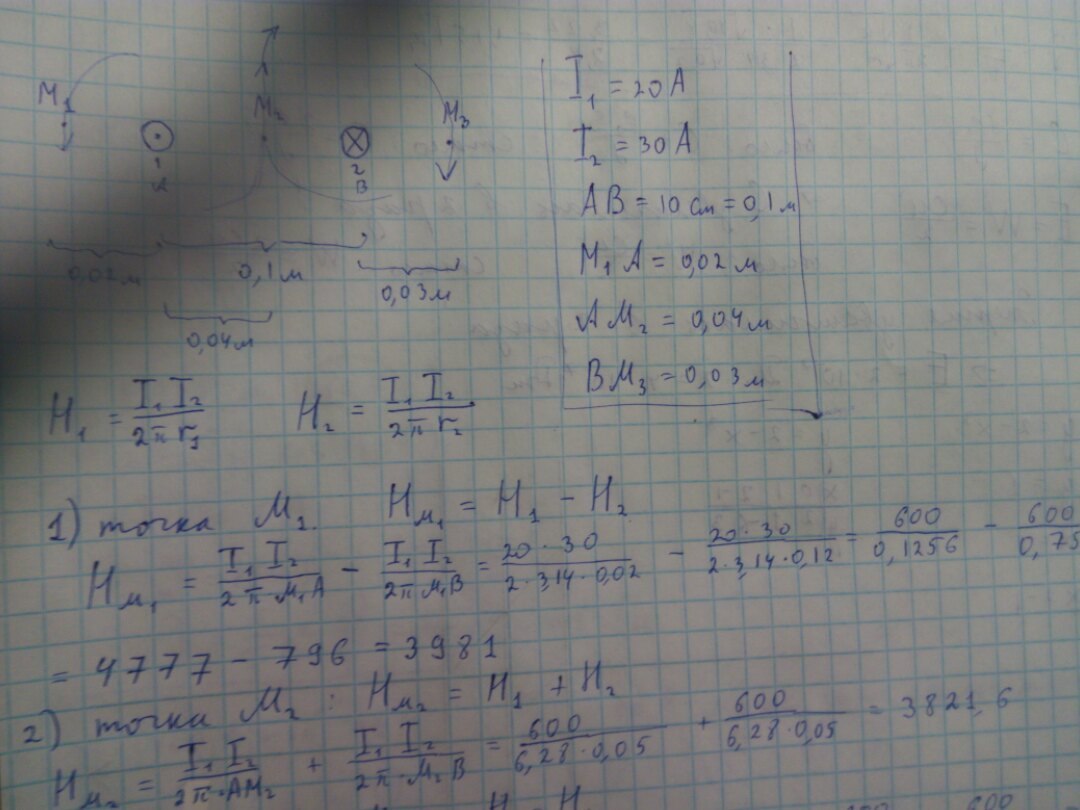 M₁
M₂
M₃
1
A
2
B
0,02м
0,1м
0,03м
0,04м
I₁ = 20 А
I₂ = 30 А
AB = 10 см = 0,1 м
M₁ A = 0,02 м
A M₂ = 0,04 м
B M₃ = 0,03 м
H₁ = I₁ I₂ / 2π r₁    H₂ = I₁ I₂ / 2π r₂
1) точка M₁. Hм₁ = H₁ − H₂
Hм₁ = I₁ I₂ / 2π·M₁A − I₁ I₂ / 2π M₁B = 20·30 / 2·3,14·0,02 − 20·30 / 2·3,14·0,12 = 600 / 0,1256 − 600 / 0,75
= 4777 − 796 = 3981
2) точка M₂ : Hм₂ = H₁ + H₂
Hм₂ = I₁ I₂ / 2π·AM₂ + I₁ I₂ / 2π·M₂B = 600 / 6,28·0,05 + 600 / 6,28·0,05 = 3821,6